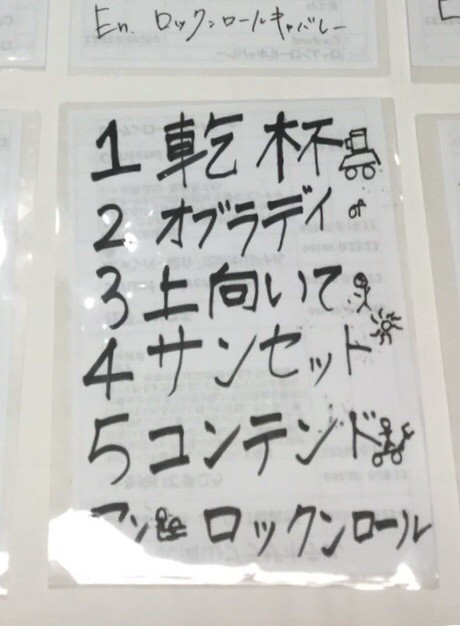 En. ロックンロールキャバレー
1 乾杯
2 オブラディ
3 上向いて
4 サンセット
5 コンテンド
アン ロックンロール